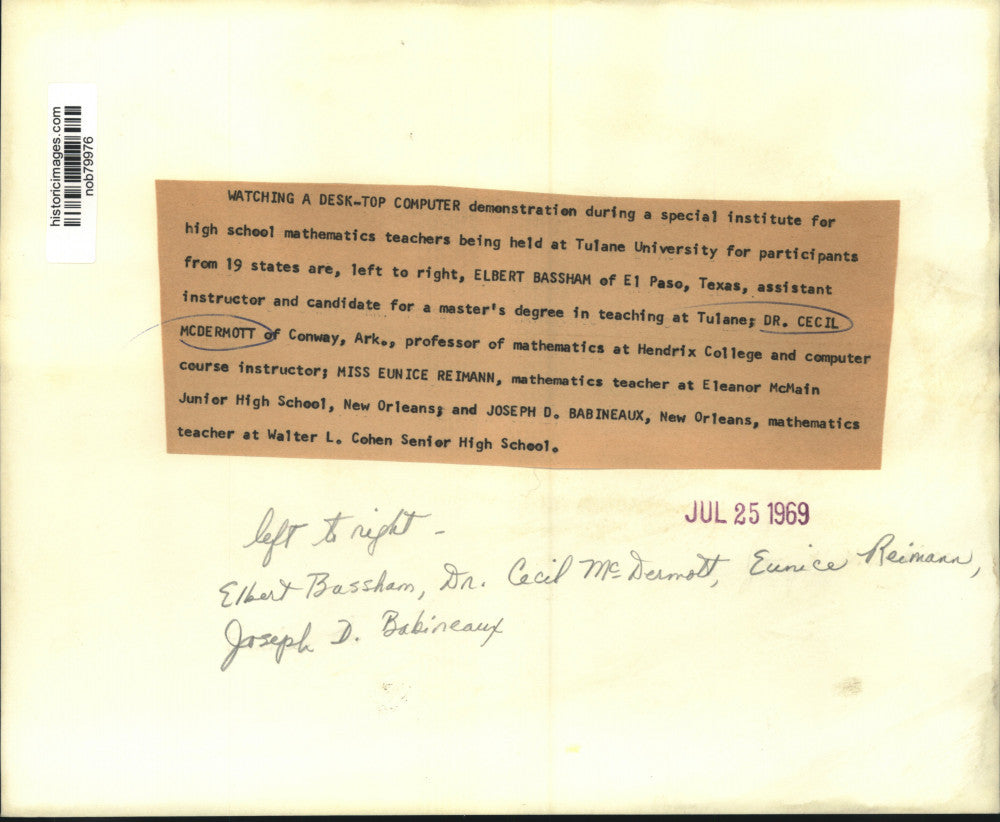 historicimages.com
nob79976
WATCHING A DESK-TOP COMPUTER demonstration during a special institute for
high school mathematics teachers being held at Tulane University for participants
from 19 states are, left to right, ELBERT BASSHAM of El Paso, Texas, assistant
instructor and candidate for a master's degree in teaching at Tulane; DR. CECIL
MCDERMOTT of Conway, Ark., professor of mathematics at Hendrix College and computer
course instructor; MISS EUNICE REIMANN, mathematics teacher at Eleanor McMain
Junior High School, New Orleans; and JOSEPH D. BABINEAUX, New Orleans, mathematics
teacher at Walter L. Cohen Senior High School.
JUL 25 1969
left to right -
Elbert Bassham, Dr. Cecil McDermott, Eunice Reimann,
Joseph D. Babineaux